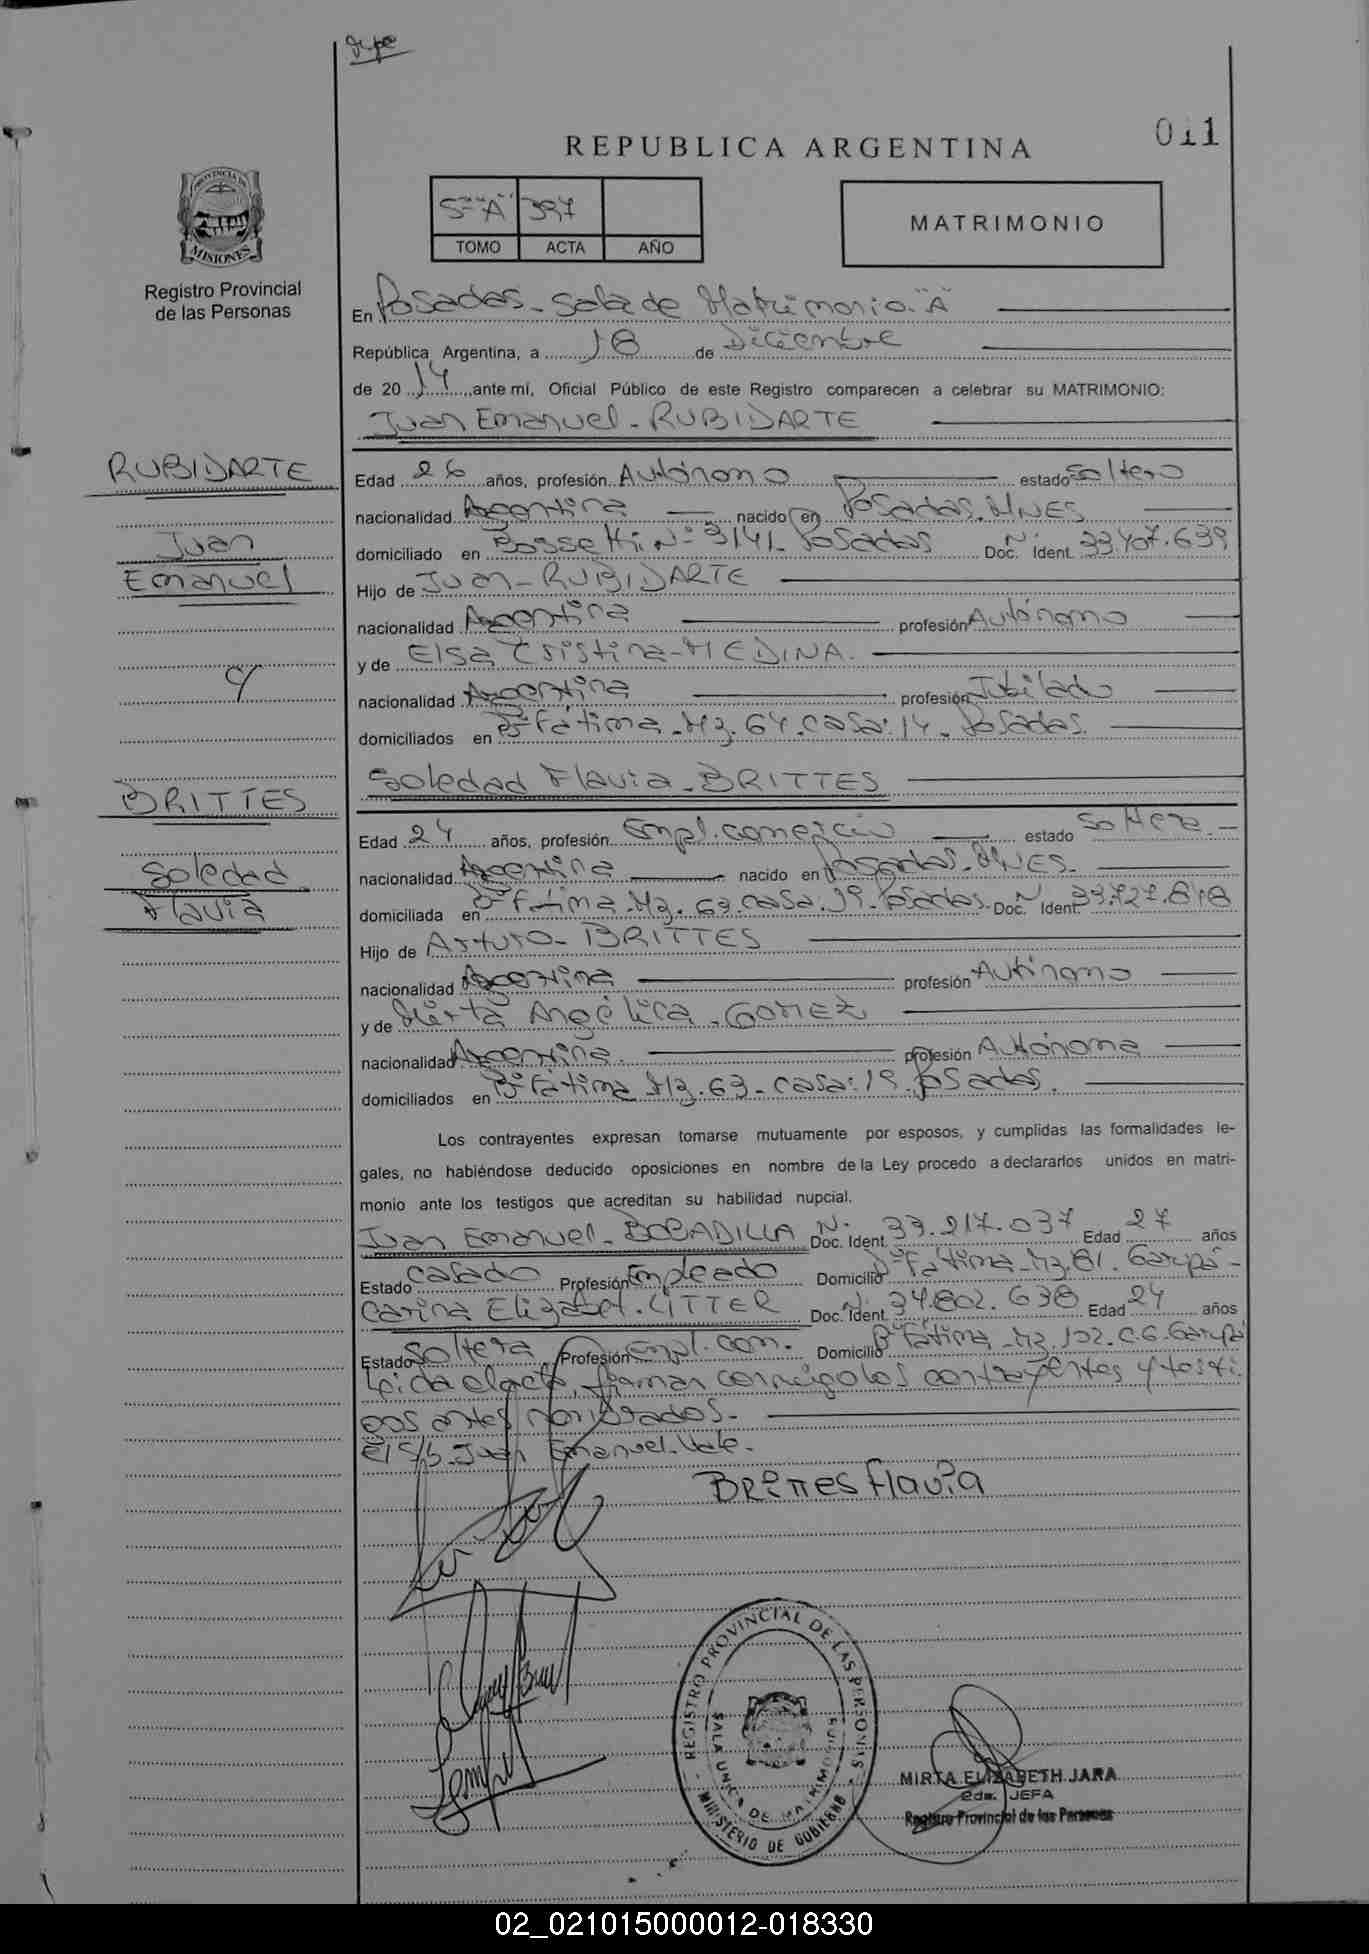 011
REPUBLICA ARGENTINA
PROVINCIA DE
MISIONES
Registro Provincial
de las Personas
5º "A" 397
TOMO ACTA AÑO
MATRIMONIO
En Posadas - Sala de Matrimonio "A"
República Argentina, a 18 de Diciembre
de 20 14 ante mí, Oficial Público de este Registro comparecen a celebrar su MATRIMONIO:
Juan Emanuel - RUBIDARTE
RUBIDARTE
Juan
Emanuel
Edad 26 años, profesión Autónomo estado soltero
nacionalidad Argentina nacido en Posadas - MNES
domiciliado en Bossetti Nº 3141 - Posadas Doc. Ident. Nº 33.407.639
Hijo de Juan - RUBIDARTE
nacionalidad Argentina profesión Autónomo
y de Elsa Cristina - MEDINA.
nacionalidad Argentina profesión Jubilado
domiciliados en Bº Fátima - Mz. 64 - casa: 14 - Posadas.
Soledad Flavia - BRITTES
y
BRITTES
Soledad
Flavia
Edad 24 años, profesión Empl. comercio estado soltera -
nacionalidad Argentina nacido en Posadas - MNES.
domiciliada en Bº Fátima - Mz. 63 - casa: 19 - Posadas - Doc. Ident. Nº 33.727.818
Hijo de Arturo - BRITTES
nacionalidad Argentina profesión Autónomo
y de Mirta Angélica - GOMEZ
nacionalidad Argentina. profesión Autónoma
domiciliados en Bº Fátima Mz. 63 - casa: 19 - Posadas.
Los contrayentes expresan tomarse mutuamente por esposos, y cumplidas las formalidades le-
gales, no habiéndose deducido oposiciones en nombre de la Ley procedo a declararlos unidos en matri-
monio ante los testigos que acreditan su habilidad nupcial.
Juan Emanuel - BOBADILLA Doc. Ident. Nº 33.217.037 Edad 27 años
Estado casado Profesión Empleado Domicilio Bº Fátima - Mz. 81 - Garupá -
Carina Elizabet - LITTER Doc. Ident. Nº 34.802.638 Edad 24 años
Estado soltera Profesión Empl. com. Domicilio Bº Fátima - Mz. 102 - C.6 - Garupá
Leída el acta, firman conmigo los contrayentes y testi
gos antes nombrados. -
E/S/b. Juan Emanuel. Vale.
BRITTES Flavia
REGISTRO PROVINCIAL DE LAS PERSONAS
SALA UNICA DE MATRIMONIOS
MINISTERIO DE GOBIERNO
MIRTA ELIZABETH JARA
2da. JEFA
Registro Provincial de las Personas
02_021015000012-018330